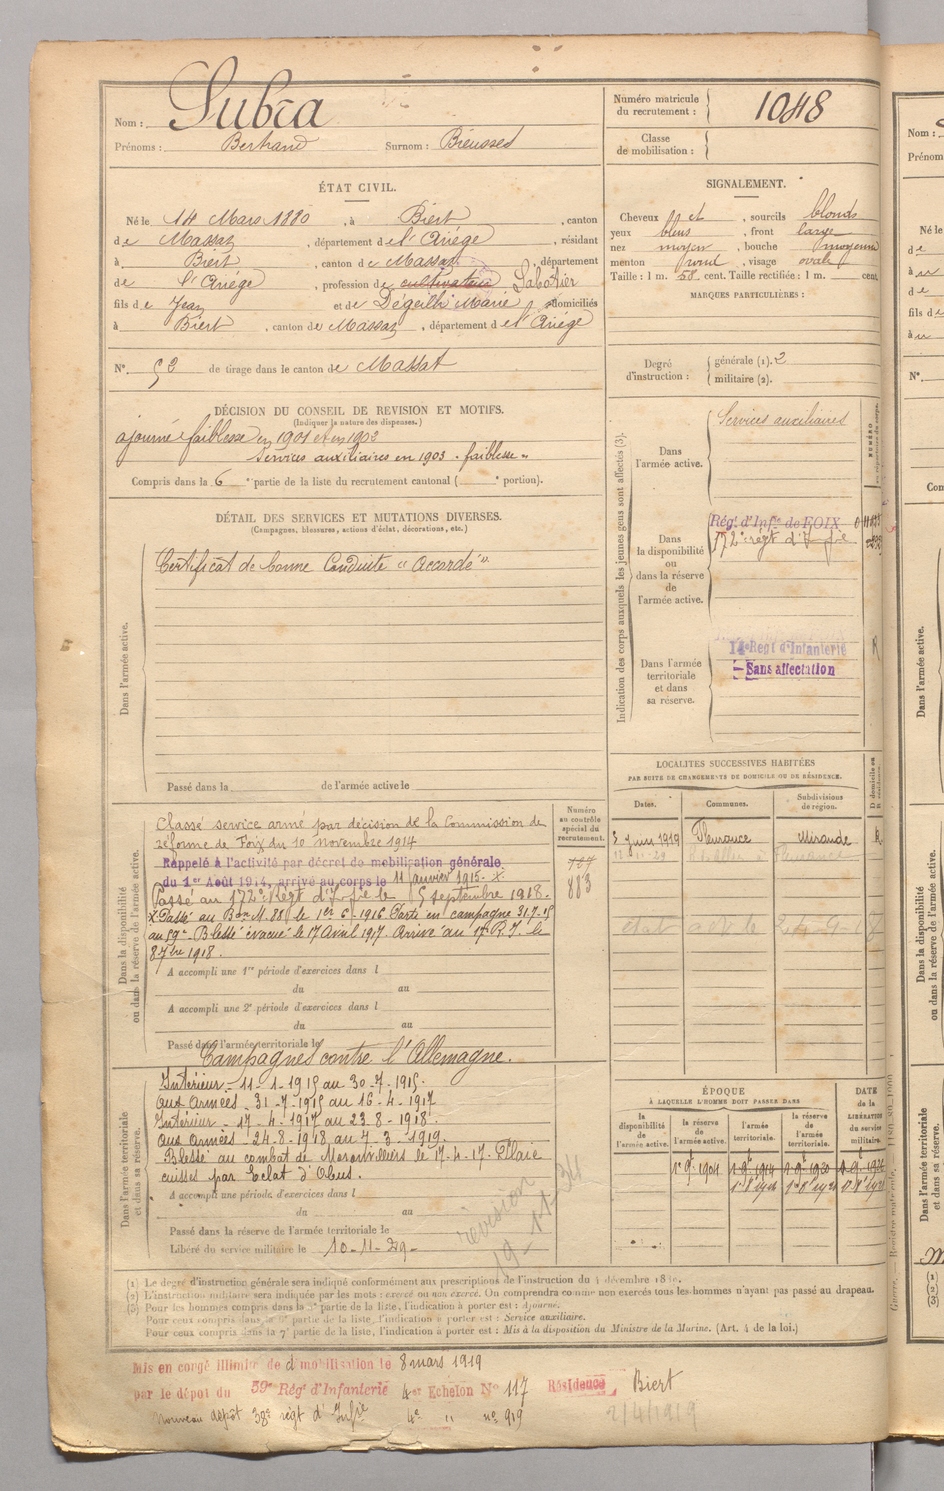 Nom : Subra
Prénoms : Bertrand Surnom : Bieusses
Numéro matricule du recrutement : 1048
Classe de mobilisation :
ÉTAT CIVIL.
Né le 14 Mars 1880, à Biert, canton
de Massat, département de l'Ariége, résidant
à Biert, canton de Massat, département
de l'Ariége, profession de cultivateur Sabotier
fils de Jean et de Dégeilh Marie domiciliés
à Biert, canton de Massat, département de l'Ariége
N° 52 de tirage dans le canton de Massat
SIGNALEMENT.
Cheveux et, sourcils blonds
yeux bleus, front large
nez moyen, bouche moyenne
menton rond, visage ovale
Taille : 1 m. 58 cent. Taille rectifiée : 1 m. cent
MARQUES PARTICULIÈRES :
Degré d'instruction :
générale (1). 2
militaire (2).
DÉCISION DU CONSEIL DE REVISION ET MOTIFS.
(Indiquer la nature des dispenses.)
ajourné faiblesse en 1901 et en 1902
Services auxiliaires en 1903 - faiblesse -
Compris dans la 6e partie de la liste du recrutement cantonal ( e portion).
DÉTAIL DES SERVICES ET MUTATIONS DIVERSES.
(Campagnes, blessures, actions d'éclat, décorations, etc.)
Dans l'armée active.
Certificat de bonne Conduite "Accordé"
Passé dans la de l'armée active le
Indication des corps auxquels les jeunes gens sont affectés (3).
Dans l'armée active.
Services auxiliaires
Dans la disponibilité ou dans la réserve de l'armée active.
Régt d'Infie de FOIX
172e régt d'Infie
Dans l'armée territoriale et dans sa réserve.
14e Régt d'Infanterie
Sans affectation
LOCALITÉS SUCCESSIVES HABITÉES
PAR SUITE DE CHANGEMENTS DE DOMICILE OU DE RÉSIDENCE.
Dates. Communes. Subdivisions de région.
3 Juin 1919 Fleurance Mirande R
Numéro au contrôle spécial du recrutement.
727
883
Dans la disponibilité ou dans la réserve de l'armée active.
Classé service armé par décision de la Commission de
réforme de Foix du 10 novembre 1914
Rappelé à l'activité par décret de mobilisation générale
du 1er Août 1914, arrivé au corps le 11 janvier 1915. X
Passé au 172e Régt d'Infie le 5 septembre 1918.
X Passé au Bon M. 88 le 1er 6-1916 Parti en campagne 31.7-15
au 59e. Blessé évacué le 17 Avril 1917. Arrivé au 17e R.I. le
8 7bre 1918.
A accompli une 1re période d'exercices dans l
du au
A accompli une 2e période d'exercices dans l
du au
Passé dans l'armée territoriale le
Campagnes contre l'Allemagne.
Dans l'armée territoriale et dans sa réserve.
Intérieur - 11-1-1915 au 30-7-1915.
aux Armées - 31-7-1915 au 16-4-1917
Intérieur - 17-4-1917 au 23-8-1918.
aux Armées - 24-8-1918 au 7-3-1919.
Blessé au combat de le 17-4-17. Plaie
cuisses par Eclat d'Obus.
A accompli une période d'exercices dans l
du au
Passé dans la réserve de l'armée territoriale le
Libéré du service militaire le 10-11-29-
révision 19-11-34
ÉPOQUE
À LAQUELLE L'HOMME DOIT PASSER DANS
la disponibilité de l'armée active.
la réserve de l'armée active.
l'armée territoriale.
la réserve de l'armée territoriale.
DATE de la LIBÉRATION du service militaire.
1er 9bre 1904
(1) Le degré d'instruction générale sera indiqué conformément aux prescriptions de l'instruction du 4 décembre
(2) L'instruction militaire sera indiquée par les mots : exercé ou non exercé. On comprendra comme non exercés tous les hommes n'ayant pas passé au drapeau.
(3) Pour les hommes compris dans la 5e partie de la liste, l'indication à porter est : Ajourné.
Pour ceux compris dans la 6e partie de la liste, l'indication à porter est : Service auxiliaire.
Pour ceux compris dans la 7e partie de la liste, l'indication à porter est : Mis à la disposition du Ministre de la Marine. (Art. 4 de la loi.)
Mis en congé illimité de démobilisation le 8 mars 1919
par le dépot du 59e Rég. d'Infanterie 4er Echelon N° 117 Résidence Biert
Nouveau dépôt 38e régt d'Infie 4e " n° 919
2/4/1919